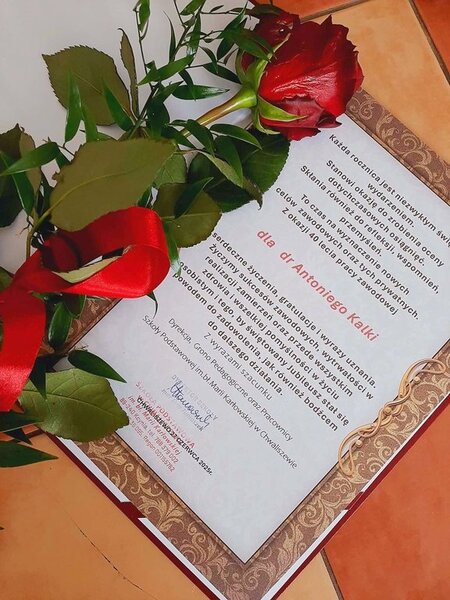 Każda rocznica jest niezwykłym
wydarzeniem.
Stanowi okazję do zrobienia oceny
dotychczasowych osiągnięć
Skłania również do refleksji, wspomnień,
przemyśleń.
To czas na wyznaczenie nowych
celów, zawodowych oraz tych prywatnych.
Z okazji 40 lecia pracy zawodowej
dla dr Antoniego Kalki
serdeczne życzenia, gratulacje i wyrazy uznania.
Życzymy sukcesów zawodowych, wytrwałości w
realizacji zamierzeń oraz przede wszystkim
zdrowia i wszelkiej pomyślności w życiu
osobistym i tego, by świętowany Jubileusz stał się
powodem do zadowolenia, jak również bodźcem
do dalszego działania.
wyrazami szacunku
Dyrekcja, Grono Pedagogiczne oraz Pracownicy
Szkoły Podstawowej im.bł Marii Karłowskiej w Chwaliszewie
CZERWCA 2025r.